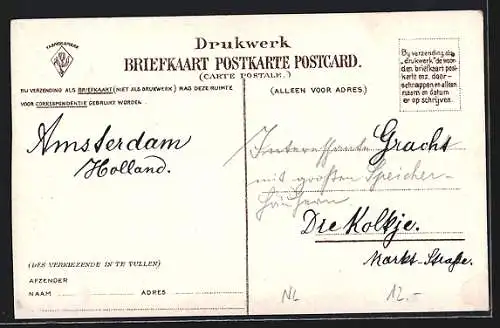 Drukwerk
BRIEFKAART POSTKARTE POSTCARD.
(CARTE POSTALE.)
FABRIEKSMERK
BIJ VERZENDING ALS BRIEFKAART (NIET ALS DRUKWERK) MAG DEZE RUIMTE
VOOR CORRESPONDENTIE GEBRUIKT WORDEN
(ALLEEN VOOR ADRES.)
By verzending als
„drukwerk" de woor-
den briefkaart post-
karte enz. door-
schrappen en alleen
naam en datum
er op schrijven.
Amsterdam
Holland.
Interessante Gracht
mit großen Speicher-
häusern
Die Kolkje.
Markt-Straße.
(DES VERKIEZENDE IN TE VULLEN)
AFZENDER
NAAM ADRES
NL 12.-